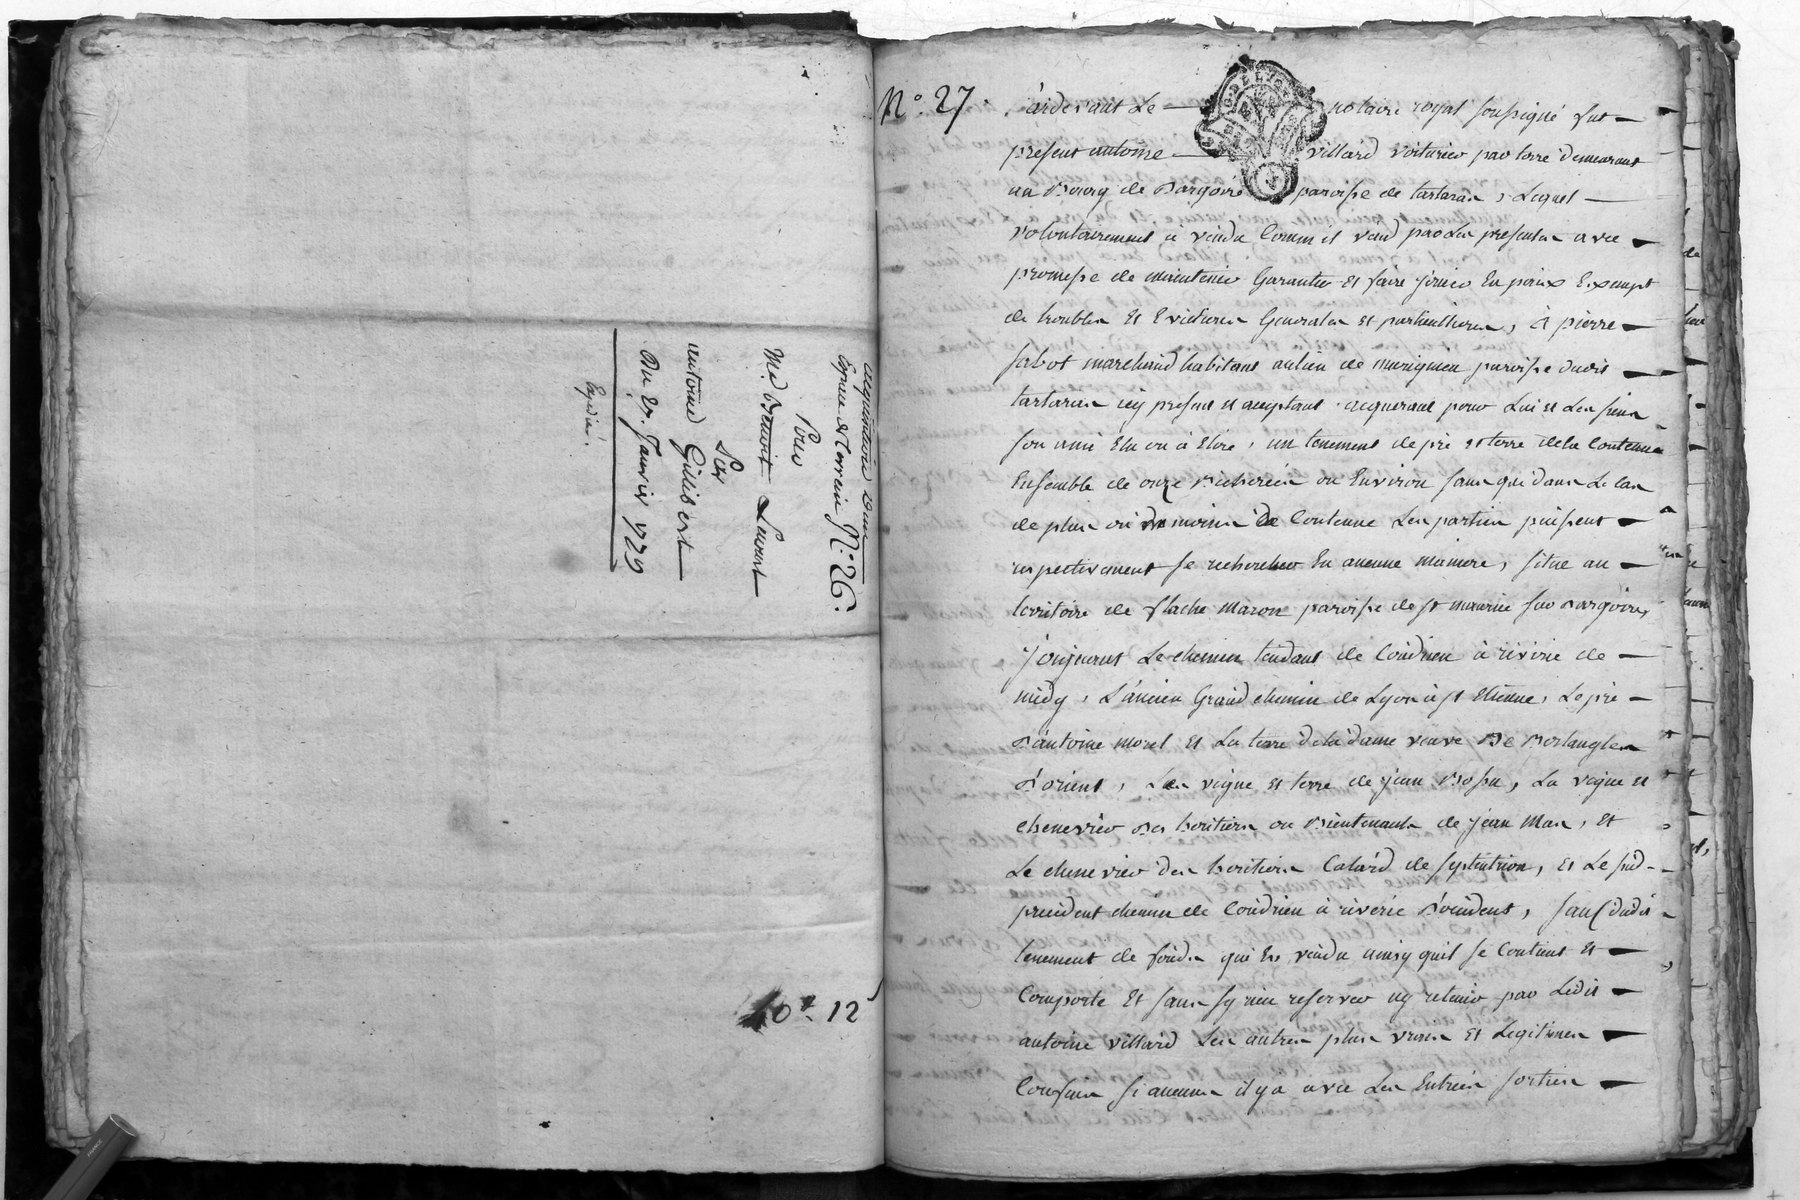 acquisition d'un
Espace de terrein N.° 26.
Pour
Me. Benoit Laurent
Par
antoine Gillibert
Du 27. Janvier 1729
Expédié.
10.e 12
N.° 27
Pardevant Le notaire royal soussigné fut
présent antoine villard voiturier par terre demeurant
au Bourg de Dargoire paroisse de tartaras, Lequel
volontairement à vendu Comm'il vend par Les présentes avec
promesse de maintenir Garantir et faire jouir En paix Exempt
de troubles Et Evictions Generales et particulieres, à pierre
sabot marchand habitant au lieu de murigneu paroisse dudit
tartaras icy présent et acceptant acquerant pour Lui et Les siens
son ami Elu ou à Elire, un tenement de pré et terre de la Contenue
Ensemble de onze Bicherées ou Environ sans que dans Le Cas
de plus ou de moins de Contenue Les parties puissent
respectivement se rechercher En aucune maniere, situé au
territoire de flache maron paroisse de st maurice sur Dargoire,
joignant Le chemin tendant de Condrieu à riverie de
midy, L'ancien Grand chemin de Lyon à st Etienne, Le pré
D'antoine morel et La terre de la Dame veuve De
D'orient, Les vigne et terre de jean Bossu, La vigne et
chenevier Des heritiers ou Bientenants de jean Mas, Et
Le chenevier des heritiers Catard de septentrion, et Le sud.
précédent chemin de Condrieu à riverie D'occident, sauf dudit
tenement de fonds qui Est vendu ainsy qu'il se Contient Et
Comporte Et sans sy rien reserver ny retenir par Ledit
antoine villard Les autres plus vrais et Legitimes
Confins si aucuns il y a avec Les Entrées sorties